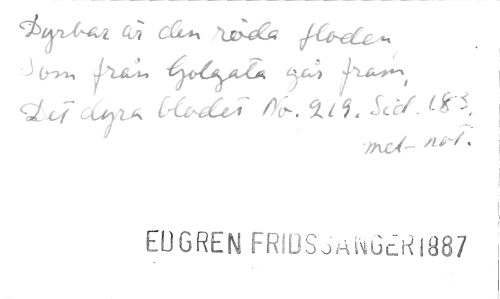 Dyrbar är den röda floden,
Som från Golgata går fram,
Det dyra blodet No. 219. Sid. 183.
met not.
EDGREN FRIDSSÅNGER 1887